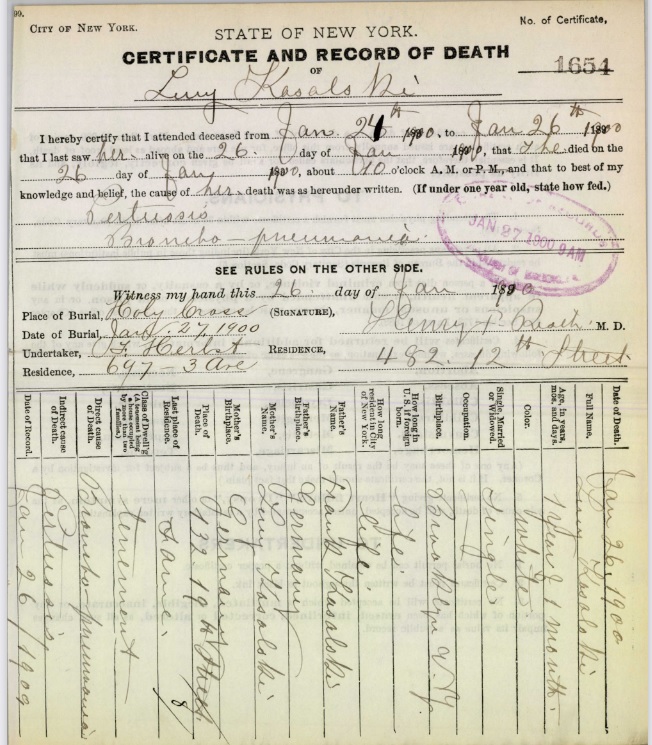 99.
CITY OF NEW YORK.
No. of Certificate,
STATE OF NEW YORK.
CERTIFICATE AND RECORD OF DEATH
1654
OF
Lucy Kasalski
I hereby certify that I attended deceased from Jan. 24th 1900, to Jan 26th 1900
that I last saw her alive on the 26. day of Jan 1900, that She died on the
26 day of Jany 1900, about 10 o'clock A. M. or P. M., and that to best of my
knowledge and belief, the cause of her death was as hereunder written. (If under one year old, state how fed.)
Pertussis
Broncho-pneumonia.
JAN. 27 1900 9 AM
SEE RULES ON THE OTHER SIDE.
Witness my hand this 26. day of Jan 1890.
Place of Burial, Holy Cross (SIGNATURE),
Henry F. M. D.
Date of Burial, Jany. 27, 1900
Undertaker, F. Herbst RESIDENCE, 482. 12th Street.
Residence, 697 - 3 Ave
Date of Death. Jan 26, 1900
Full Name, Lucy Kasolski
Age, in years, mos. and days. 1 year & 1 month.
Color. white
Single, Married or Widowed. Single
Occupation.
Birthplace. Brooklyn N.Y.
How long in U. S. if foreign born. life.
How long resident in City of New York. life.
Father's Name. Frank Kasalski
Father's Birthplace. Germany
Mother's Name. Lucy Kasolski
Mother's Birthplace. Germany
Place of Death. 172 19th Street
Last place of Residence. Same. 8
Class of Dwell'g (A tenement being a house occupied by more than two families.) tenement
Direct cause of Death. Broncho-pneumonia
Indirect cause of Death. Pertussis
Date of Record. Jan 26/1900